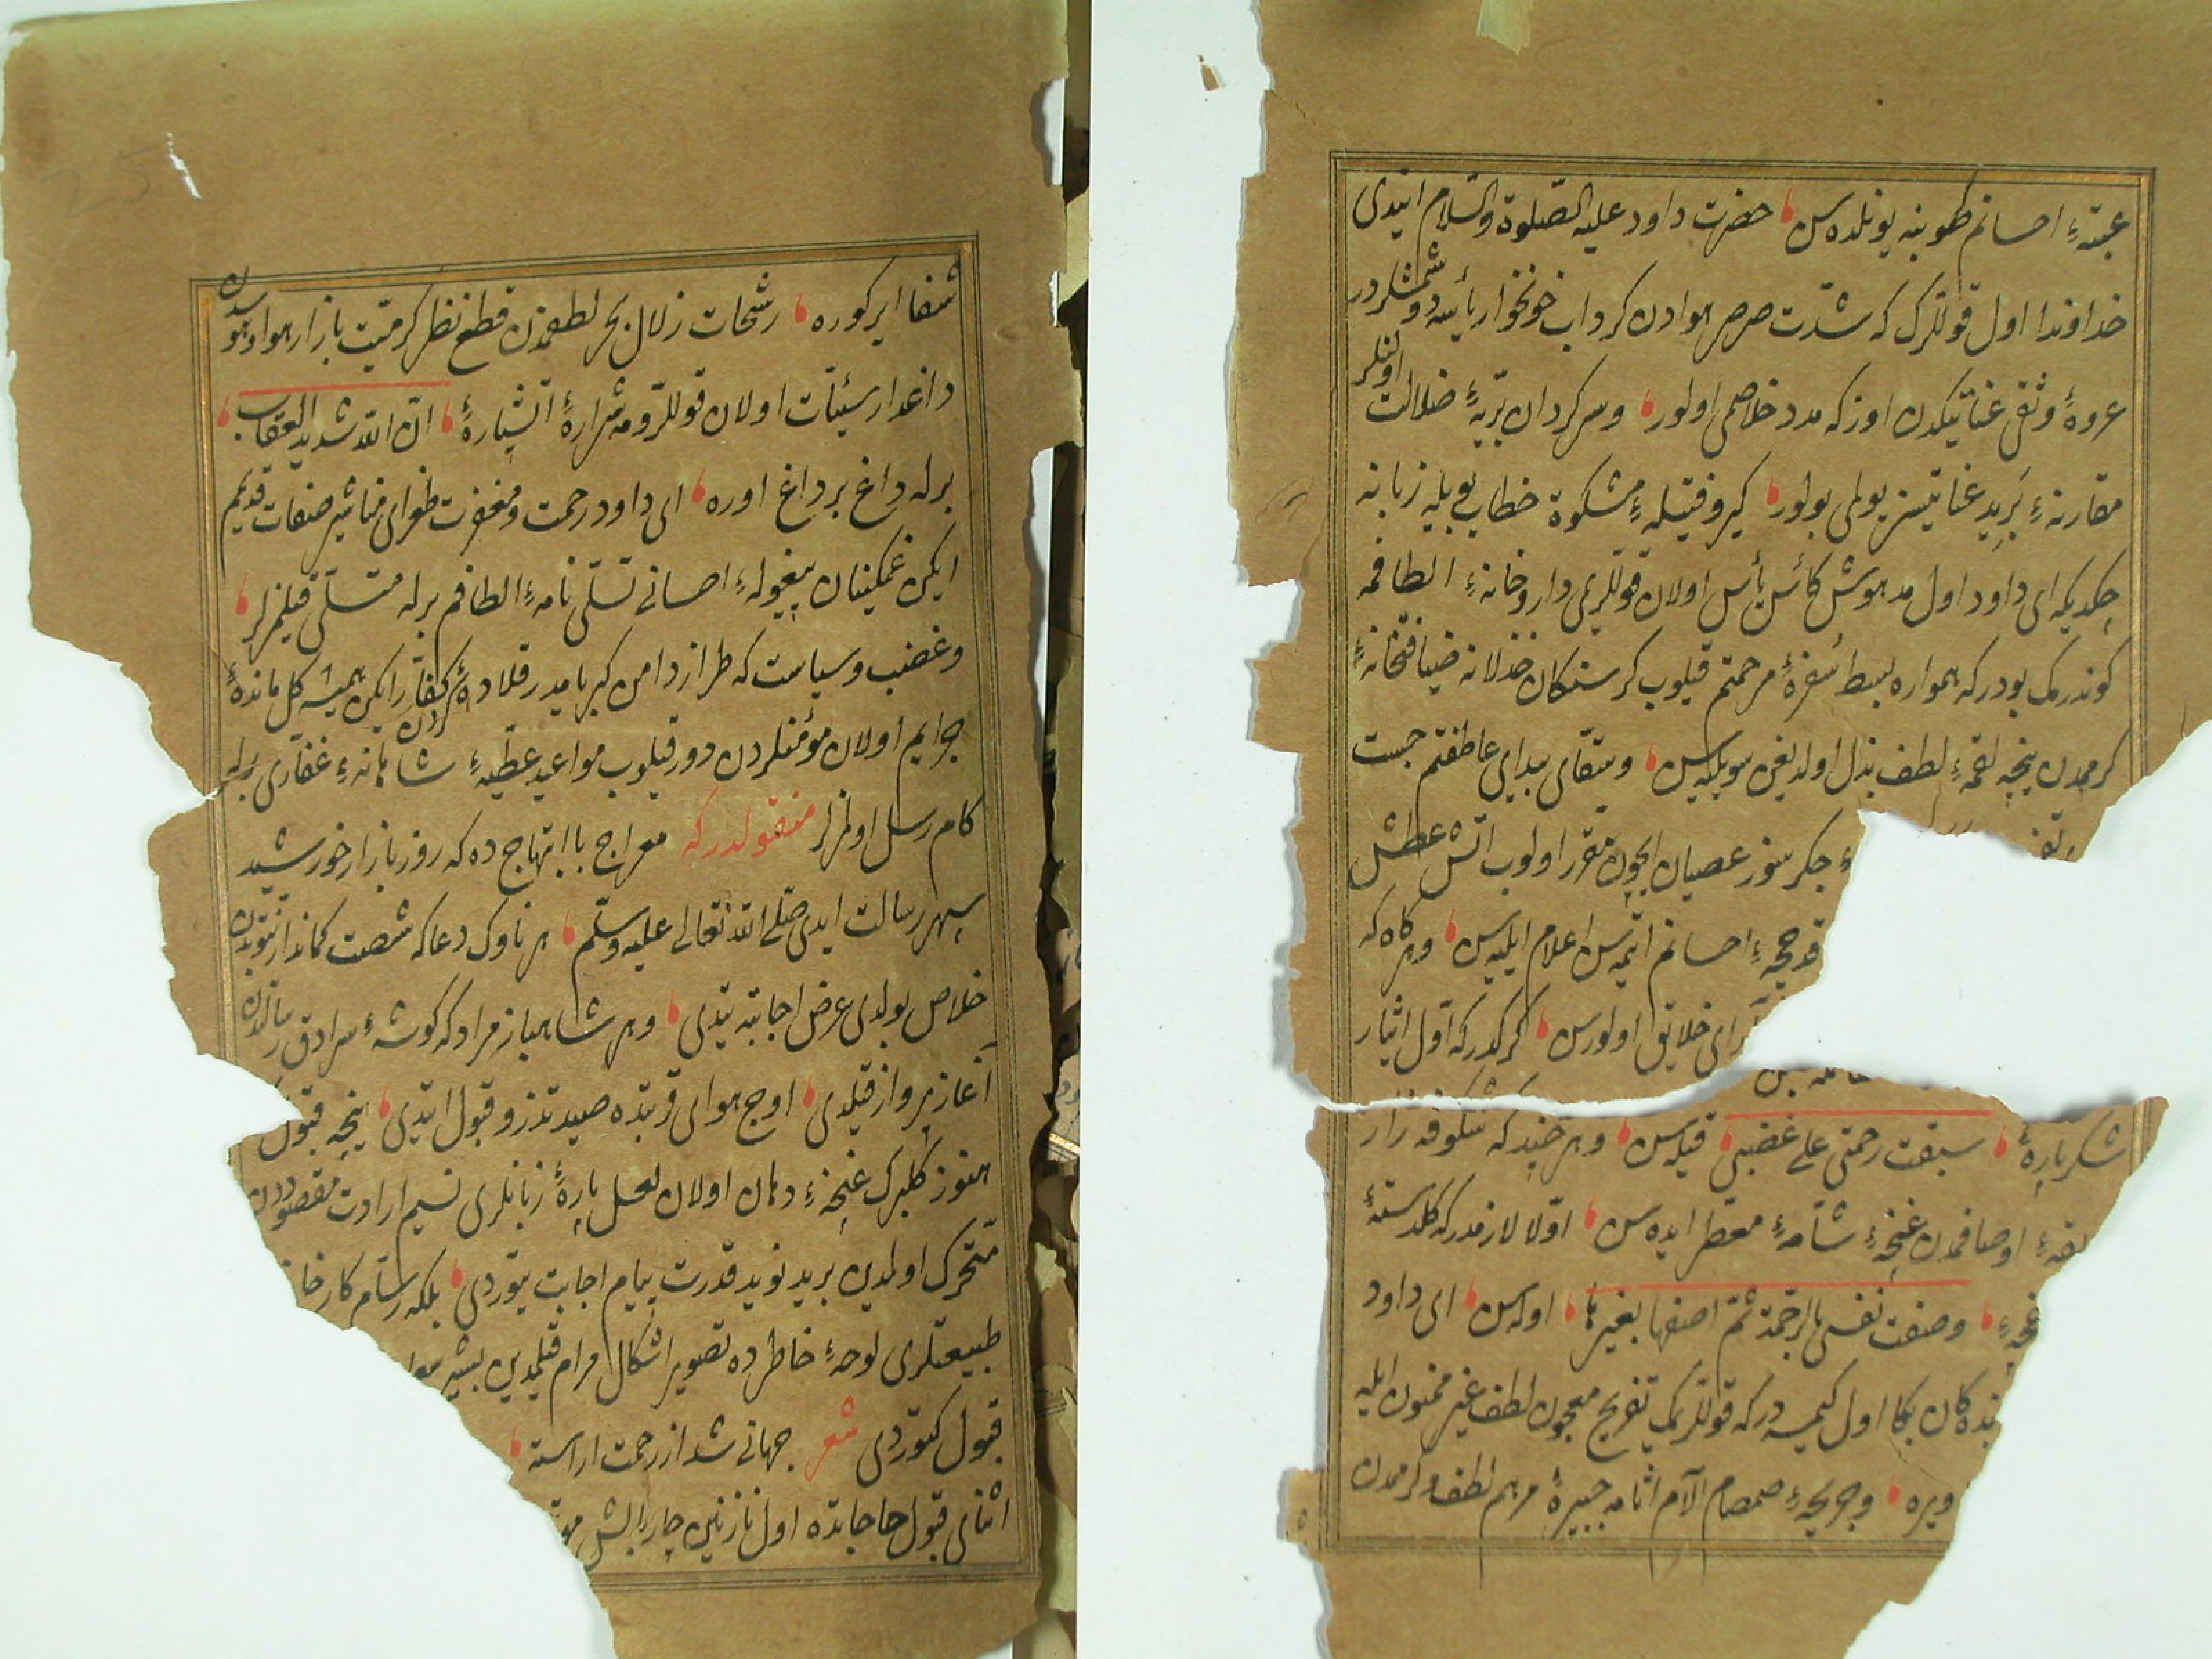 عبته‌ٔ احسانم طوبنه یونلده‌س حضرت داود علیه الصلوة والسلام ایتدی
خداوندا اول قوللرک که شدت صرصر هوادن کرداب خونخوار یأسه دوشمشلردر
عروهٔ وثقی عنایتیکدن اوزکه مدد خلاصی اولور وسرکردان بریه‌ٔ ضلالت اولنلر
مقارنه‌ٔ برید عنایتیسز یولی بولور کیرو فتیله‌ٔ مشکوة خطاب بویله زبانه
چکدیکه ای داود اول مدهوش کأس یأس اولان قوللریمی داروخانه‌ٔ الطافمه
کوندرمک بودرکه همواره بسط سفرهٔ مرحمتم قیلوب کرسنکان خذلانه ضیافتخانه‌ٔ
کرممدن نیجه لقمه‌ٔ لطف بذل اولدیغین سویلیه‌س وسقای سدای عاطفتم جست
جکر سوز عصیان ایچون مقرر اولوب اتش عطش
قوجه‌ٔ احسانم ایتمه‌س اعلام ایلیه‌س وهرکاه که
رای خلایق اولورس کرکدرکه اول ایثار
شکرپارهٔ سبقت رحمتی علی غضبی قیله‌س وهر چند که شکوفه زار
اوصافمدن غنچه‌ٔ شامه‌ٔ معطر ایده‌س اولا لازمدرکه کلدسته‌ٔ
غنچه‌ٔ وصفت نفسی بالرحمة ثم اصفها بغیرها اوله‌س ای داود
بنده‌کان بکا اول کیمسه درکه قوللریمی تفریح معجون لطف غیر ممنون ایله
ویره وجریحه‌ٔ صمصام آلام اثامه جبیرهٔ مرهم لطف وکرممدن
شفا ایرکوره رشحات زلال بحر لطفمدن قطع نظر کرمیت بازار هوا وهوسدن
داغدار سیئات اولان قوللرومه شرارهٔ آتشپارهٔ ان الله شدید العقاب
برله داغ بر داغ اوره ای داود رحمت ومغفرت طغرای مناشیر صفات قدیم
ایکن غمکینان بیغوله‌ٔ احسانی تسلی نامه‌ٔ الطافم برله متسلی قیلمزلر
وغضب وسیاست که طراز دامن کبریامدر قلادهٔ کردن کفار ایکن همیشه کل ماندهٔ
جرایم اولان مؤمنلردن دور قیلوب مواعید عطیه‌ٔ شاهانه‌ٔ غفاری برله
کام رسل اولمزلر منقولدرکه معراج باابتهاج ده که روز بازار خورشید
سپهر رسالت ایدی صلی الله تعالی علیه وسلم هر ناوک دعا که شصت کماندار نبوتدن
خلاص بولدی عرض اجابته یتدی وهر شاهباز مراد که کوشه‌ٔ سرادق رسالتدن
آغاز پرواز قیلدی اوج هوای قربتده صید تذرو قبول ایتدی نیجه قبول
هنوز کلبرک غنچه‌ٔ دهان اولان لعل پارهٔ زبانلری نسیم ارادت مقصوددن
متحرک اولمدین برید نوید قدرت پیام اجابت یتوردی بلکه رسام کارخا
طبیعتلری لوحه‌ٔ خاطرده تصویر اشکال مرام قیلمدین بشیر
قبول کتوردی شعر جهانی شد از رحمت اراسته
اثنای قبول حاجاتده اول نازنین چاربالش